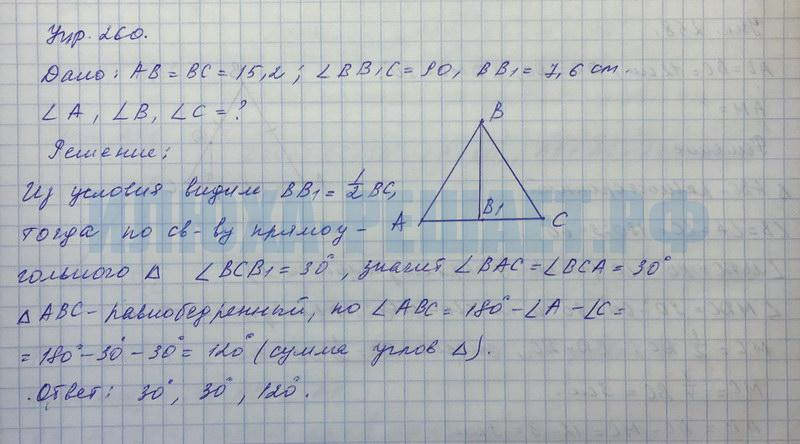 Упр. 260.
Дано: AB = BC = 15,2; ∠BB₁C = 90, BB₁ = 7,6 cm.
∠A, ∠B, ∠C = ?
Решение:
Из условия видим BB₁ = 1/2 BC,
тогда по св-ву прямоу-
гольного Δ ∠BCB₁ = 30°, значит ∠BAC = ∠BCA = 30°
ΔABC - равнобедренный, но ∠ABC = 180° - ∠A - ∠C =
= 180° - 30° - 30° = 120° (сумма углов Δ).
Ответ: 30°, 30°, 120°.
B
A
B₁
C